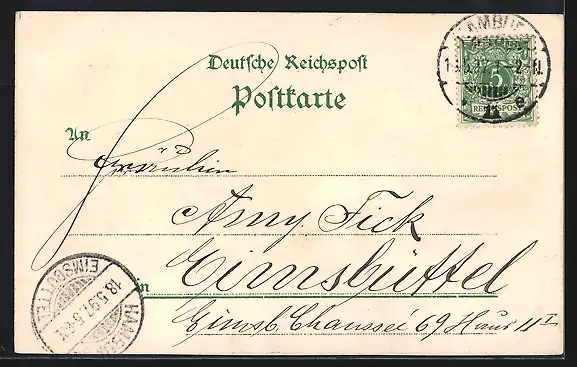 Deutsche Reichspost
Postkarte
HAMBURG
5
REICHSPOST
11
e
An
Fräulein
Amy Fick
in Eimsbüttel
Eimsb. Chaussée 69 Haus 11 I
HAMBURG
EIMSBÜTTEL
18.5.97.5-6N